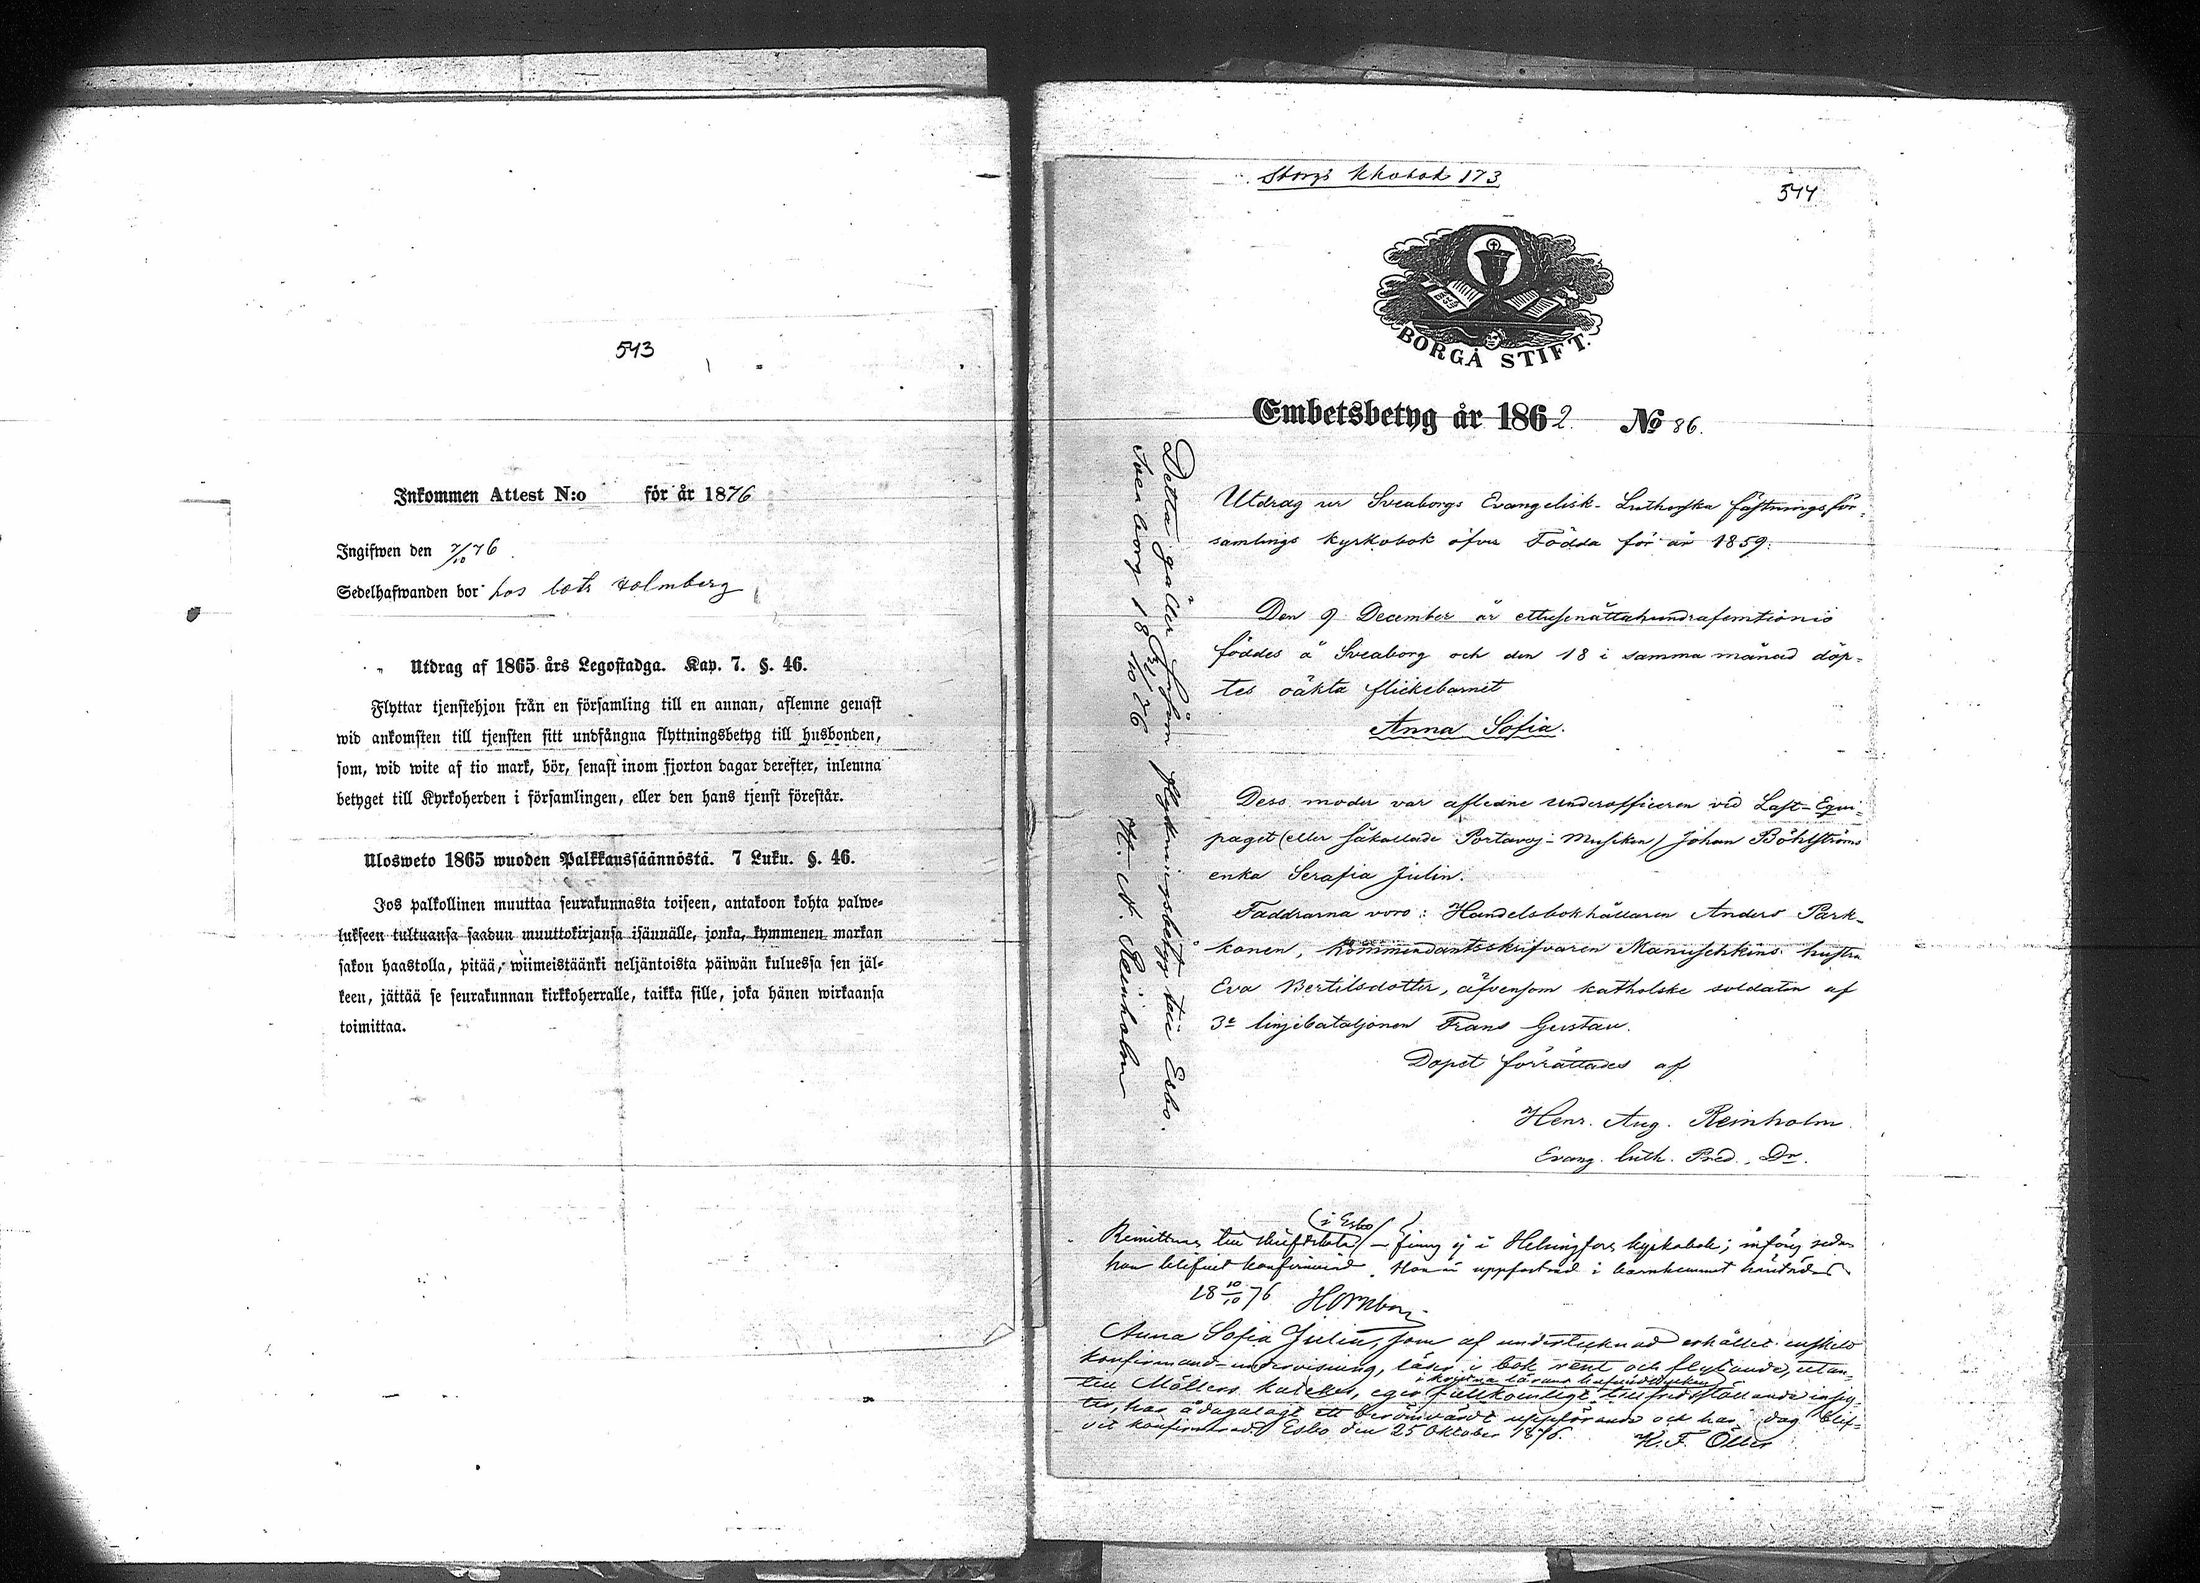 543
Inkommen Attest N:o för år 1876
Ingifwen den 7/10 76.
Sedelhafwanden bor hos Holmberg
Utdrag af 1865 års Legostadga. Kap. 7. §. 46.
Flyttar tjenstehjon från en församling till en annan, aflemne genast
wid ankomsten till tjensten sitt undfångna flyttningsbetyg till husbonden,
som, wid wite af tio mark, bör, senast inom fjorton dagar derefter, inlemna
betyget till Kyrkoherden i församlingen, eller den hans tjenst förestår.
Ulosweto 1865 wuoden Palkkaussäännöstä. 7 Luku. §. 46.
Jos palkollinen muuttaa seurakunnasta toiseen, antakoon kohta palwe-
lukseen tultuansa saadun muuttokirjansa isännälle, jonka, kymmenen markan
sakon haastolla, pitää, wiimeistäänki neljäntoista päiwän kuluessa sen jäl-
keen, jättää se seurakunnan kirkkoherralle, taikka sille, joka hänen wirkaansa
toimittaa.
173
544
BORGÅ STIFT.
Embetsbetyg år 1862. No 86.
Utdrag ur Sveaborgs Evangelisk-Lutherska fästningsför-
samlings kyrkobok öfver Födda för år 1859.
Den 9 December år ettusenåttahundrafemtionio
föddes å Sveaborg och den 18 i samma månad döp-
tes oäkta flickebarnet
Anna Sofia.
Dess moder var aflidne underofficeren vid Last-Equi-
paget (eller såkallade Portavoj-Musiken) Johan Böhlströms
enka Serafia Julin.
Faddrarna voro: Handelsbokhållaren Anders Park-
konen, Kommendantsskrifvaren Manuschkins hustru
Eva Bertilsdotter, äfvensom katholske soldaten af
3e linjebataljonen Frans Gustav.
Dopet förrättades af
Henr. Aug. Reinholm.
Evang. luth. Pred., Dr.
Detta gäller såsom flyttningsbetyg till Esbo.
Sveaborg 18 10 76
H. A. Reinholm
(i Esbo)
Remitteras till – finns ej i Helsingfors kyrkobok; införes sedan
hon blifvit konfirmerad. Hon är uppfostrad i barnhemmet härstädes
18 10/10 76 Hornborg
Anna Sofia Julin, som af undertecknad erhållit enskild
konfirmand-undervisning, läser i bok rent och flytande, utan-
till Möllers katekes, eger i kristna lärans hufvudstycken fullkomligt tillfredsställande insig-
ter, har ådagalagt ett berömvärdt uppförande och har i dag blif-
vit konfirmerad. Esbo den 25 Oktober 1876. K. F.